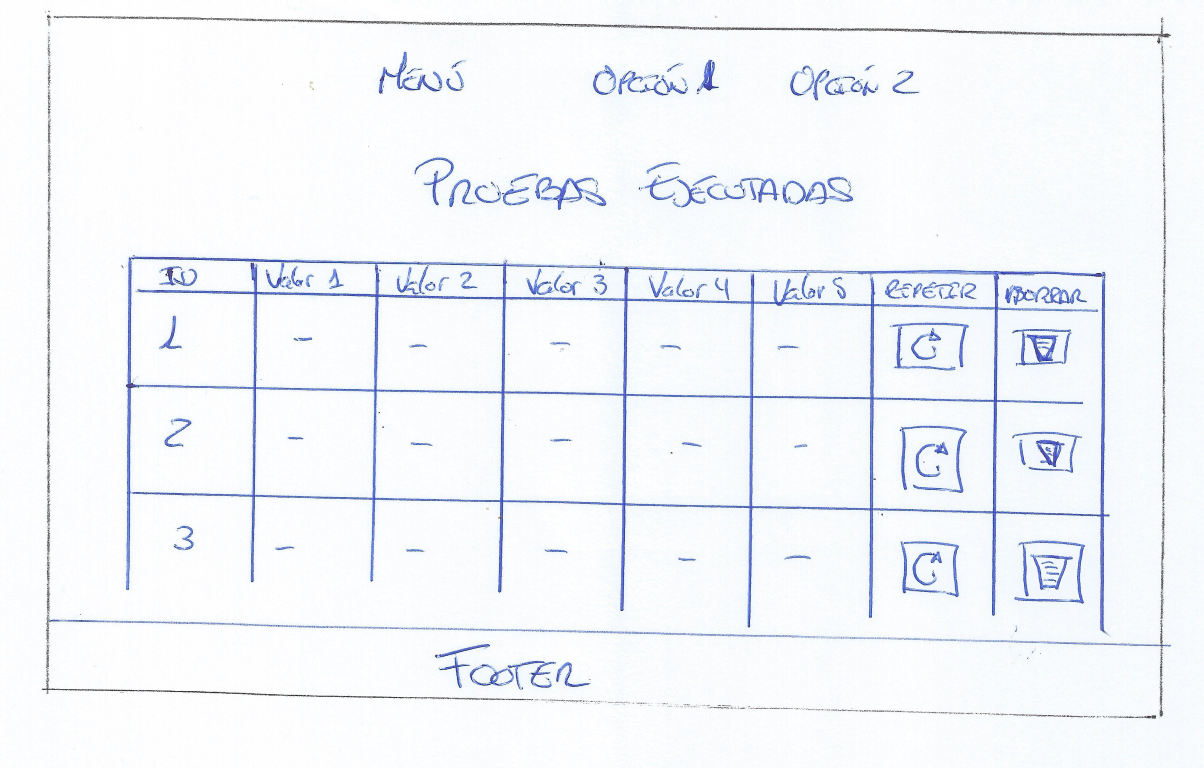 MENÚ OPCIÓN 1 OPCIÓN 2
PRUEBAS EJECUTADAS
ID Valor 1 Valor 2 Valor 3 Valor 4 Valor 5 REPETIR BORRAR
1 - - - - -
2 - - - - -
3 - - - - -
FOOTER